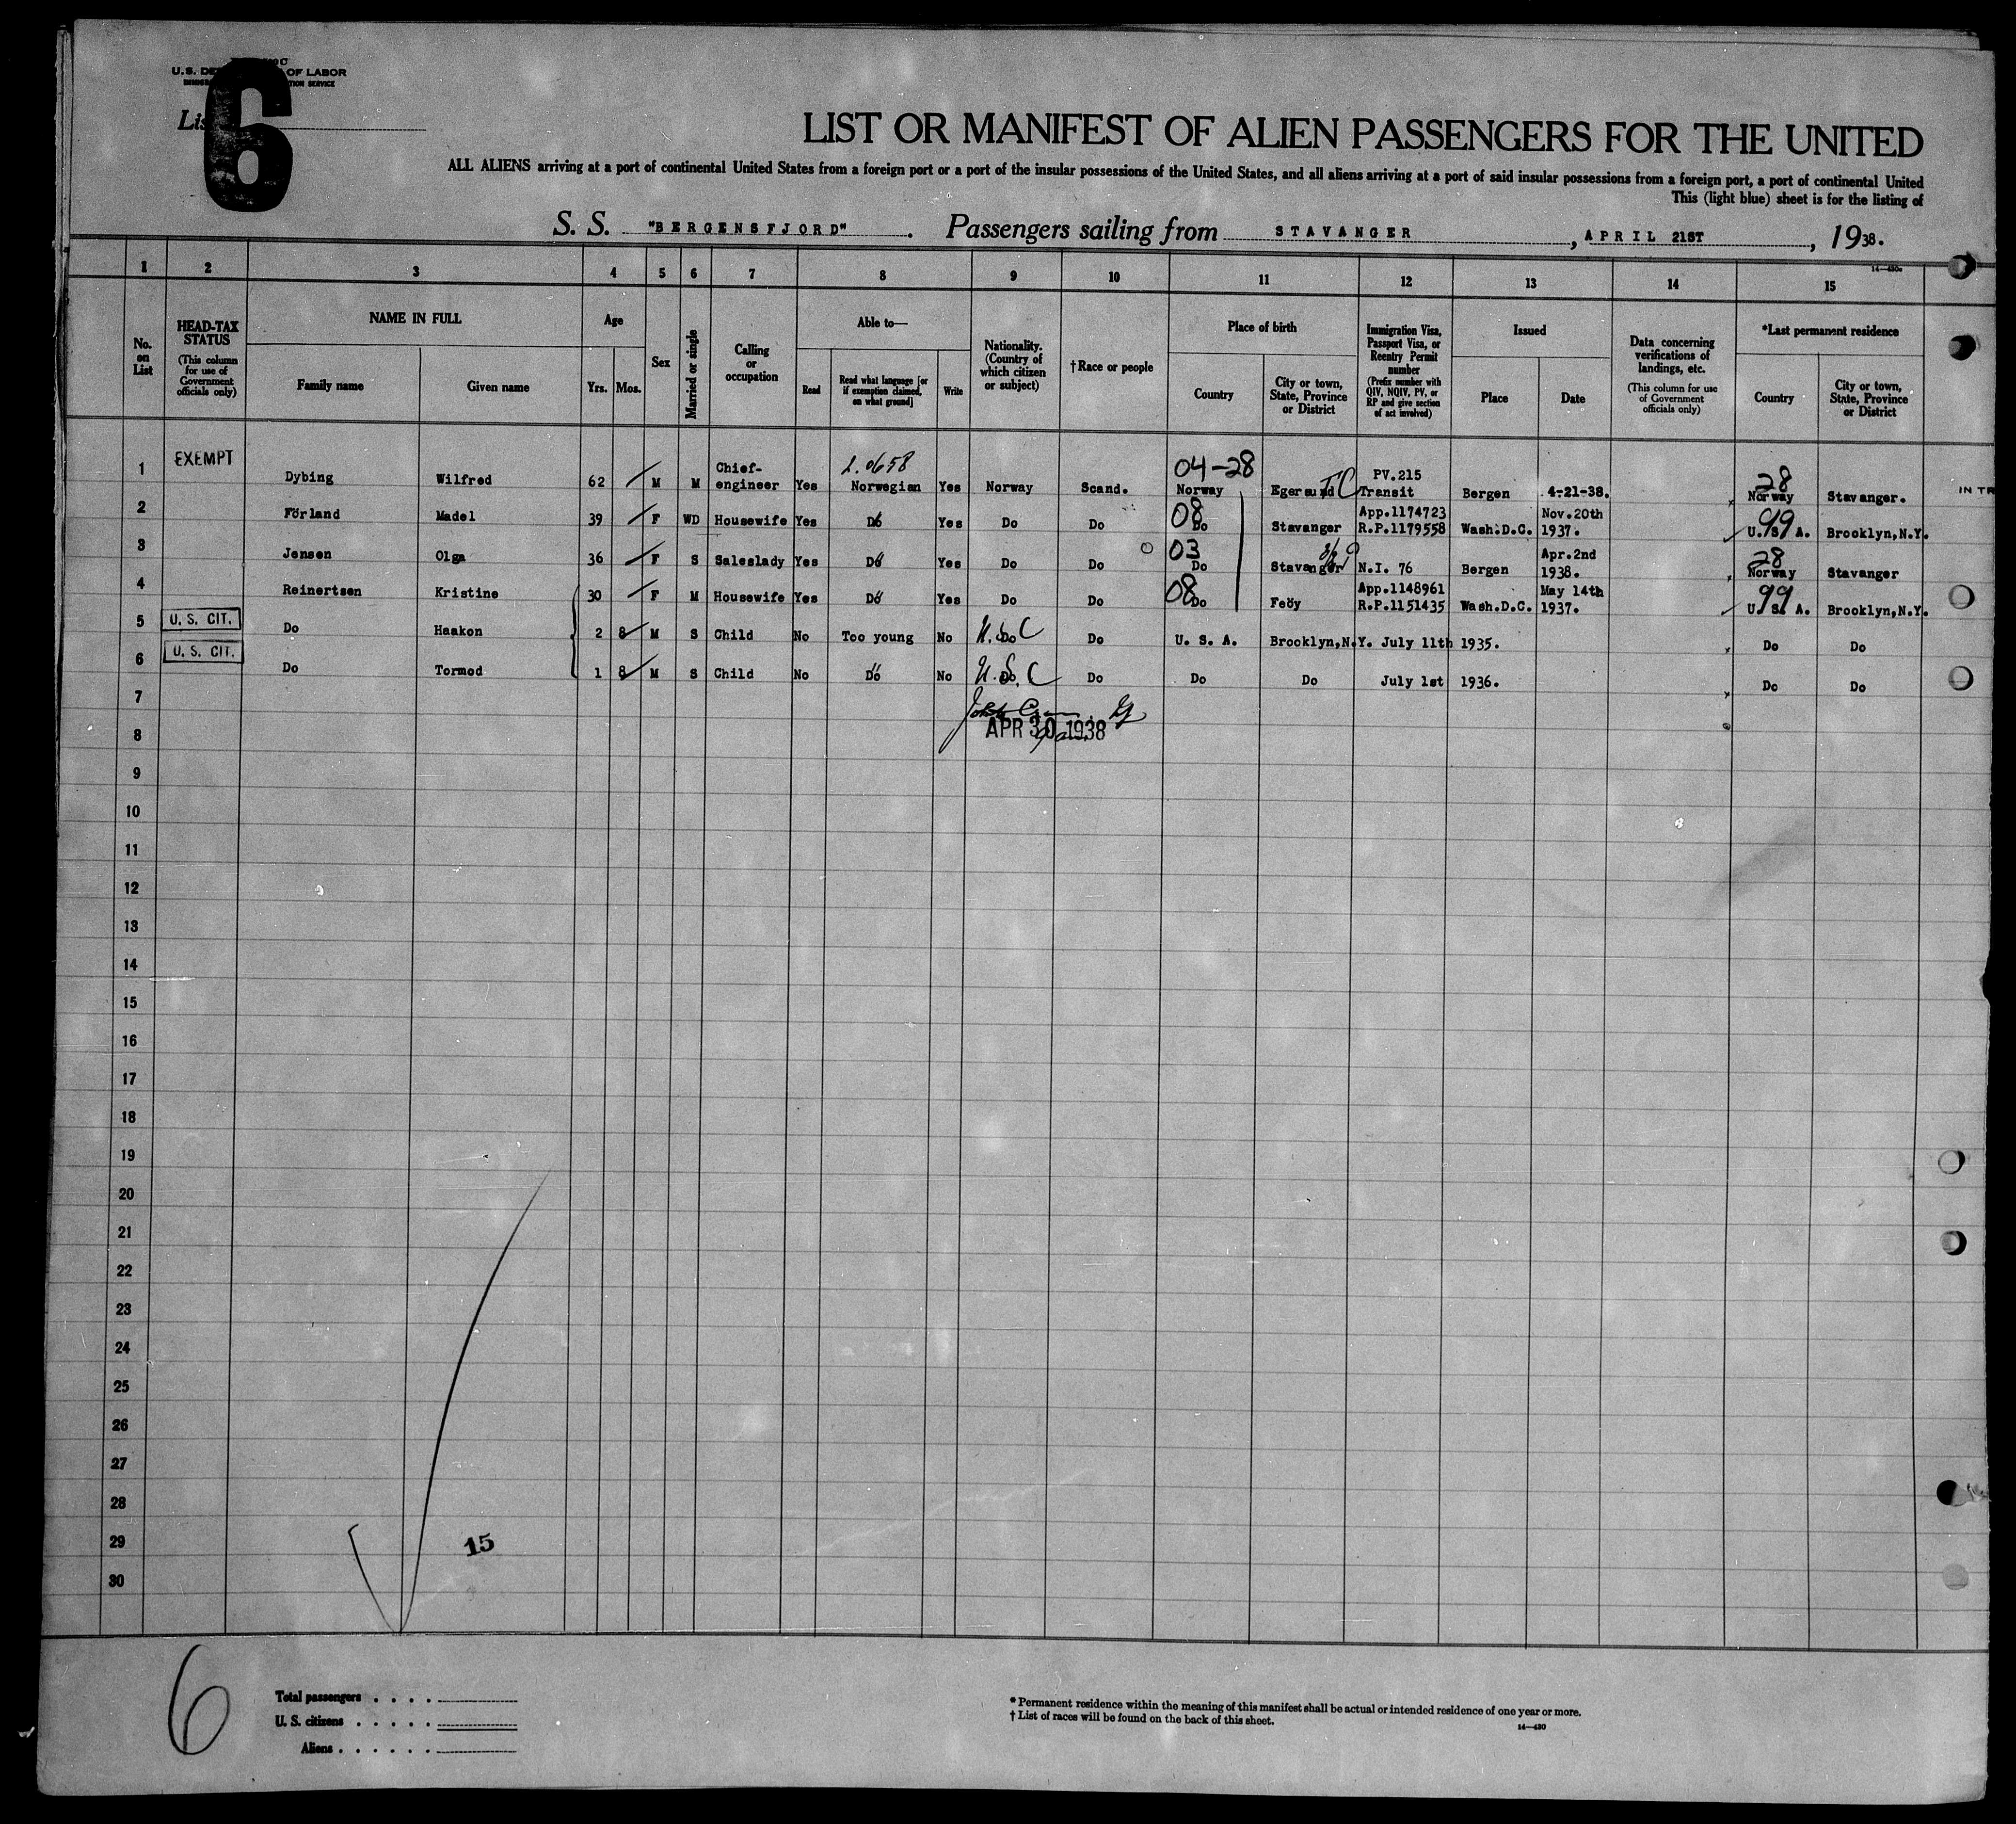 U.S. DE OF LABOR
TION SERVICE
6
LIST OR MANIFEST OF ALIEN PASSENGERS FOR THE UNITED
ALL ALIENS arriving at a port of continental United States from a foreign port or a port of the insular possessions of the United States, and all aliens arriving at a port of said insular possessions from a foreign port, a port of continental United
This (light blue) sheet is for the listing of
S. S. "BERGENSFJORD". Passengers sailing from STAVANGER, APRIL 21ST, 1938.
14-430a
1 2 3 4 5 6 7 8 9 10 11 12 13 14 15
No. on List
HEAD-TAX STATUS
(This column for use of Government officials only)
NAME IN FULL
Family name Given name
Age
Yrs. Mos.
Sex
Married or single
Calling or occupation
Able to—
Read
Read what language [or if exemption claimed, on what ground]
Write
Nationality. (Country of which citizen or subject)
†Race or people
Place of birth
Country
City or town, State, Province or District
Immigration Visa, Passport Visa, or Reentry Permit number
(Prefix number with QIV, NQIV, PV, or RP and give section of act involved)
Issued
Place Date
Data concerning verifications of landings, etc.
(This column for use of Government officials only)
*Last permanent residence
Country
City or town, State, Province or District
EXEMPT 04-28 TC PV.215 28
1 Dybing Wilfred 62 M M Chief-engineer Yes Norwegian Yes Norway Scand. Norway Egersund Transit Bergen 4-21-38. Norway Stavanger. IN TR
08 App.1174723 Nov.20th 99
2 Förland Madel 39 F WD Housewife Yes Do Yes Do Do Do Stavanger R.P.1179558 Wash.D.C. 1937. U.S.A. Brooklyn,N.Y.
03 Apr.2nd 28
3 Jensen Olga 36 F S Saleslady Yes Do Yes Do Do Do Stavanger N.I. 76 Bergen 1938. Norway Stavanger
08 App.1148961 May 14th 99
4 Reinertsen Kristine 30 F M Housewife Yes Do Yes Do Do Do Feöy R.P.1151435 Wash.D.C. 1937. U.S.A. Brooklyn,N.Y.
5 U. S. CIT. Do Haakon 2 8 M S Child No Too young No Do U.S.C Do U. S. A. Brooklyn,N.Y. July 11th 1935. Do Do
6 U. S. CIT. Do Tormod 1 8 M S Child No Do No Do U.S.C Do Do Do July 1st 1936. Do Do
7
APR 30 1938
8
9
10
11
12
13
14
15
16
17
18
19
20
21
22
23
24
25
26
27
28
29
15
30
6
Total passengers
U. S. citizens
Aliens
* Permanent residence within the meaning of this manifest shall be actual or intended residence of one year or more.
† List of races will be found on the back of this sheet.
14-430